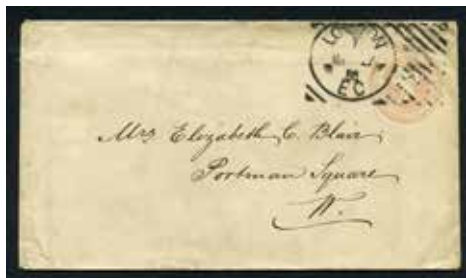 LONDON
E C
Mrs Elizabeth C. Blair,
Portman Square
W.